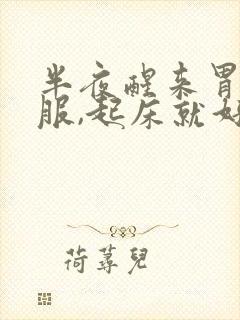 半夜醒来胃
服,起床就好
荷荨儿